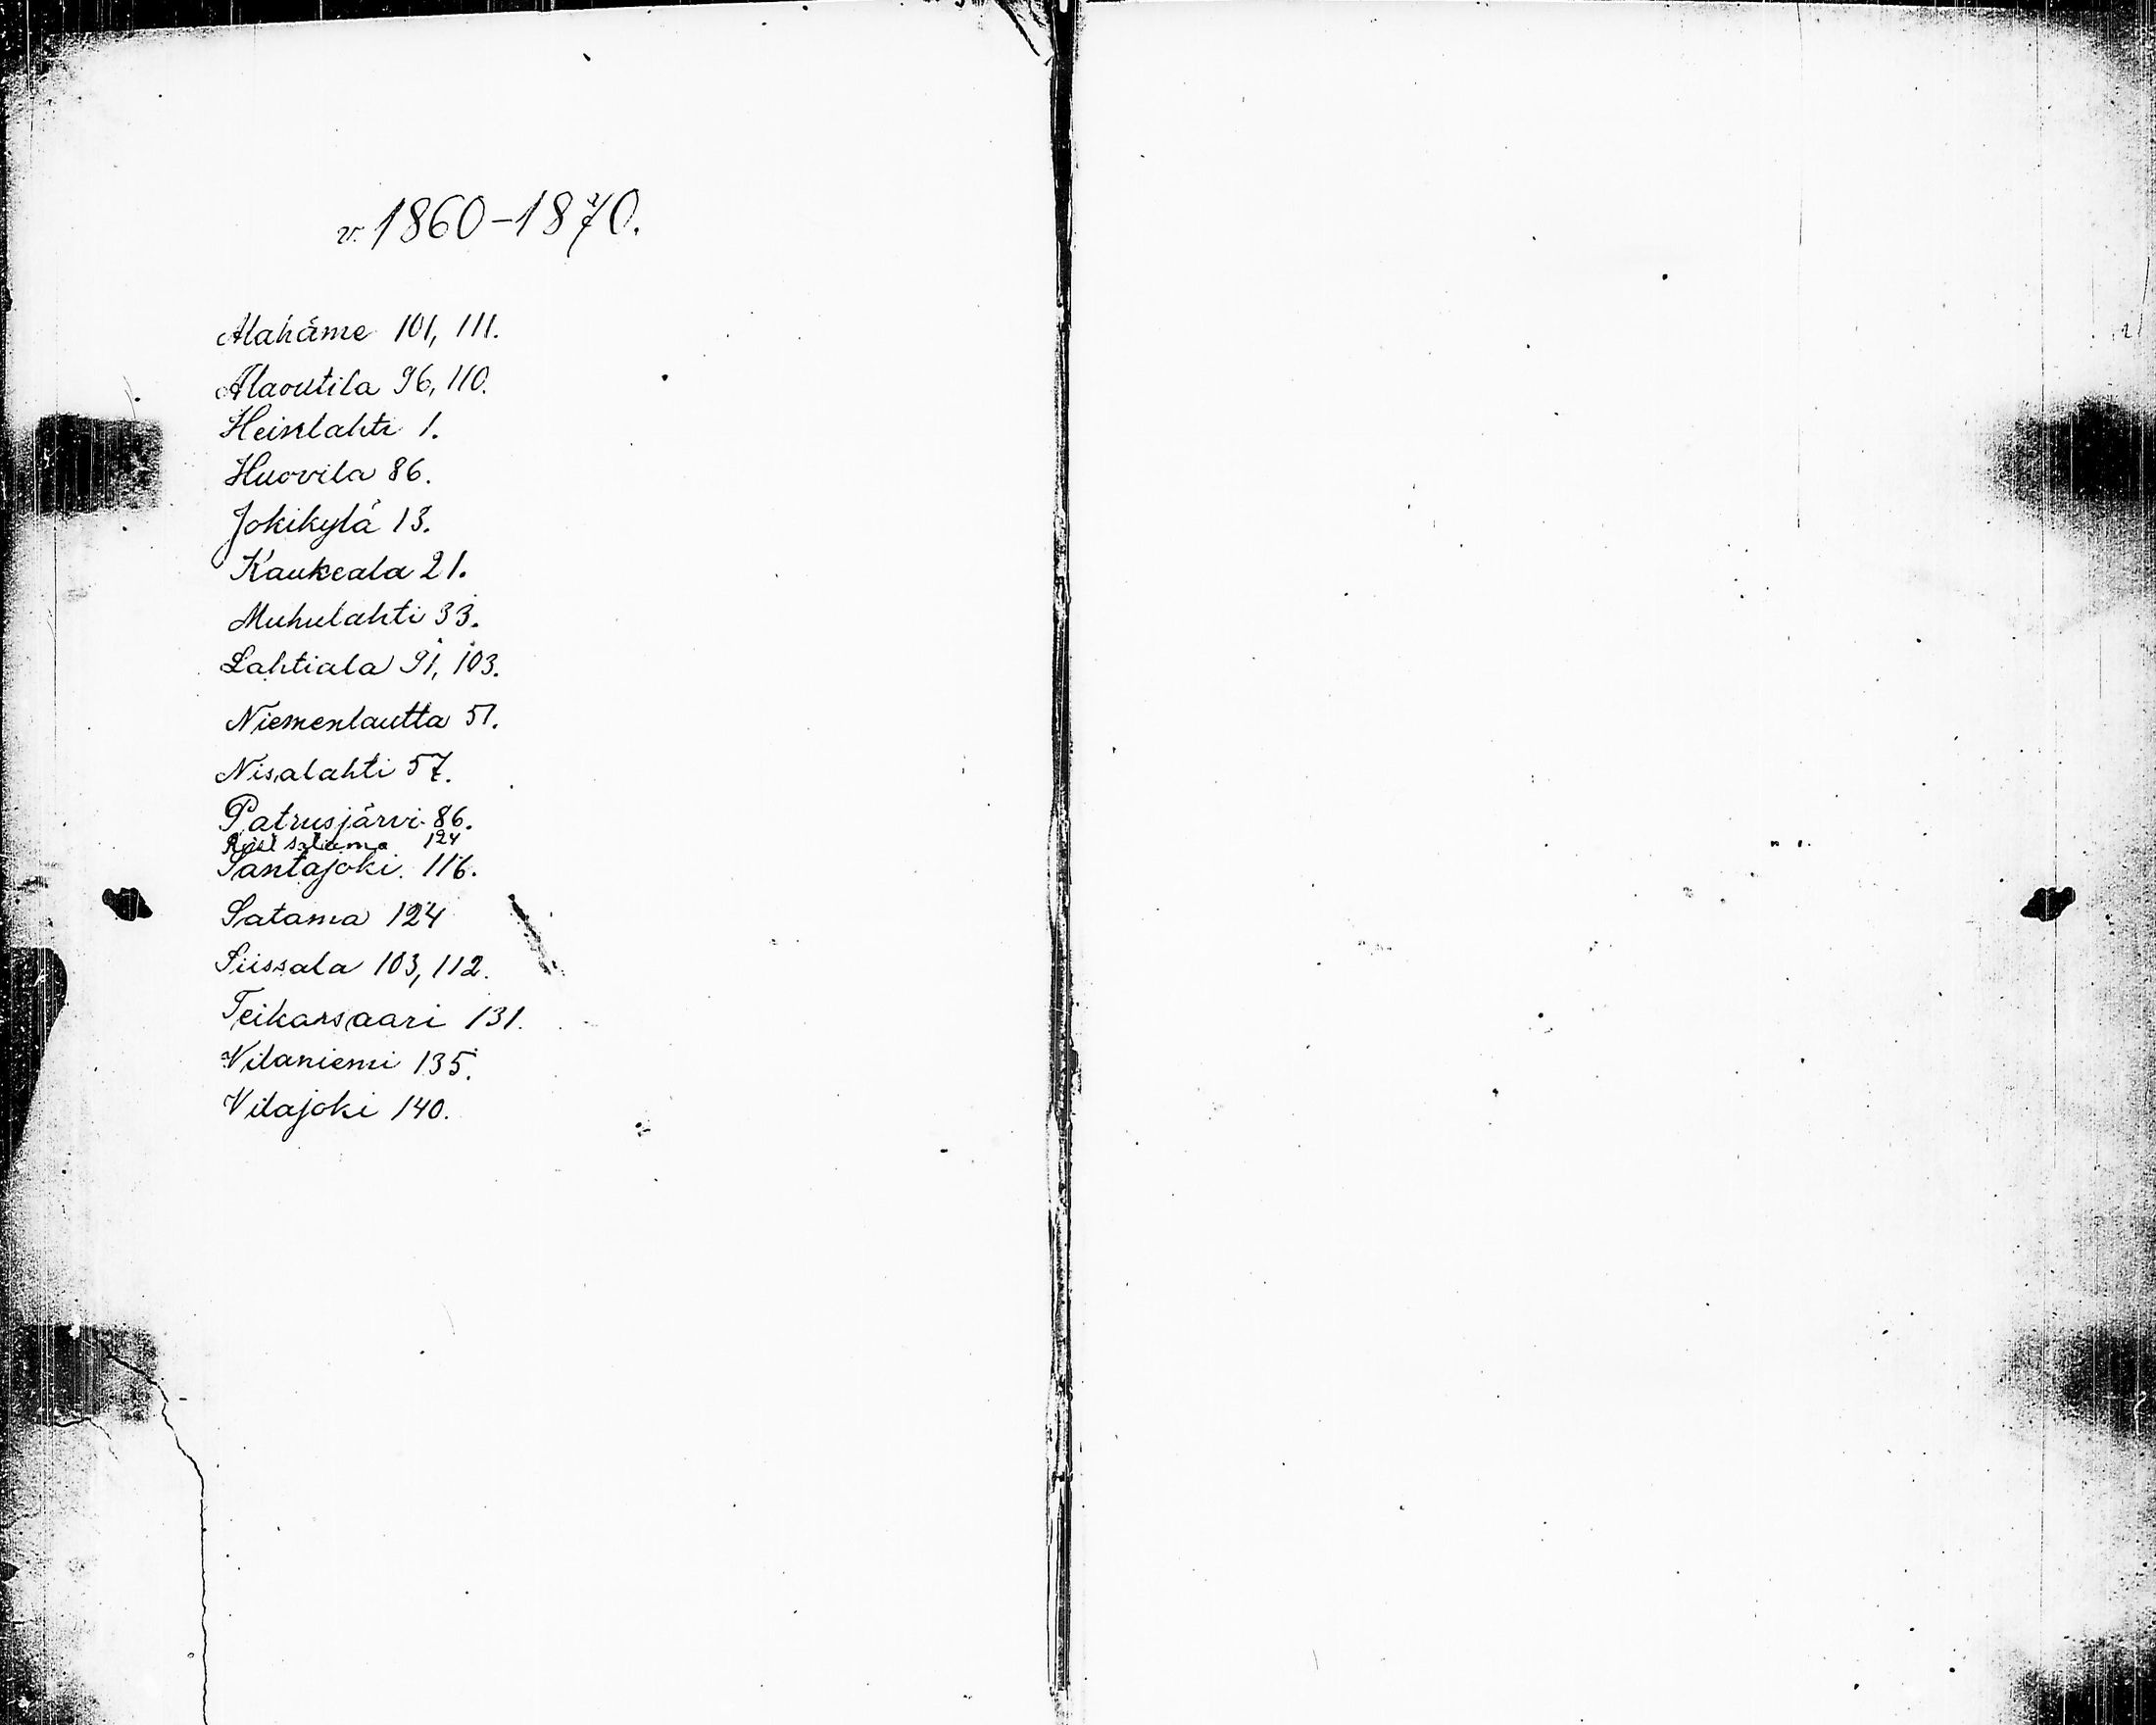 v. 1860-1870.
Alahäme 101, 111.
Alaoutila 96, 110.
Heinlahti 1.
Huovila 86.
Jokikylä 13.
Kaukeala 21.
Muhulahti 33.
Lahtiala 91, 103.
Niemenlautta 51.
Nisalahti 57.
Patrusjärvi 86.
satama 124
Santajoki. 116.
Satama 124
Siissala 103, 112.
Teikarsaari 131.
Vilaniemi 135.
Vilajoki 140.